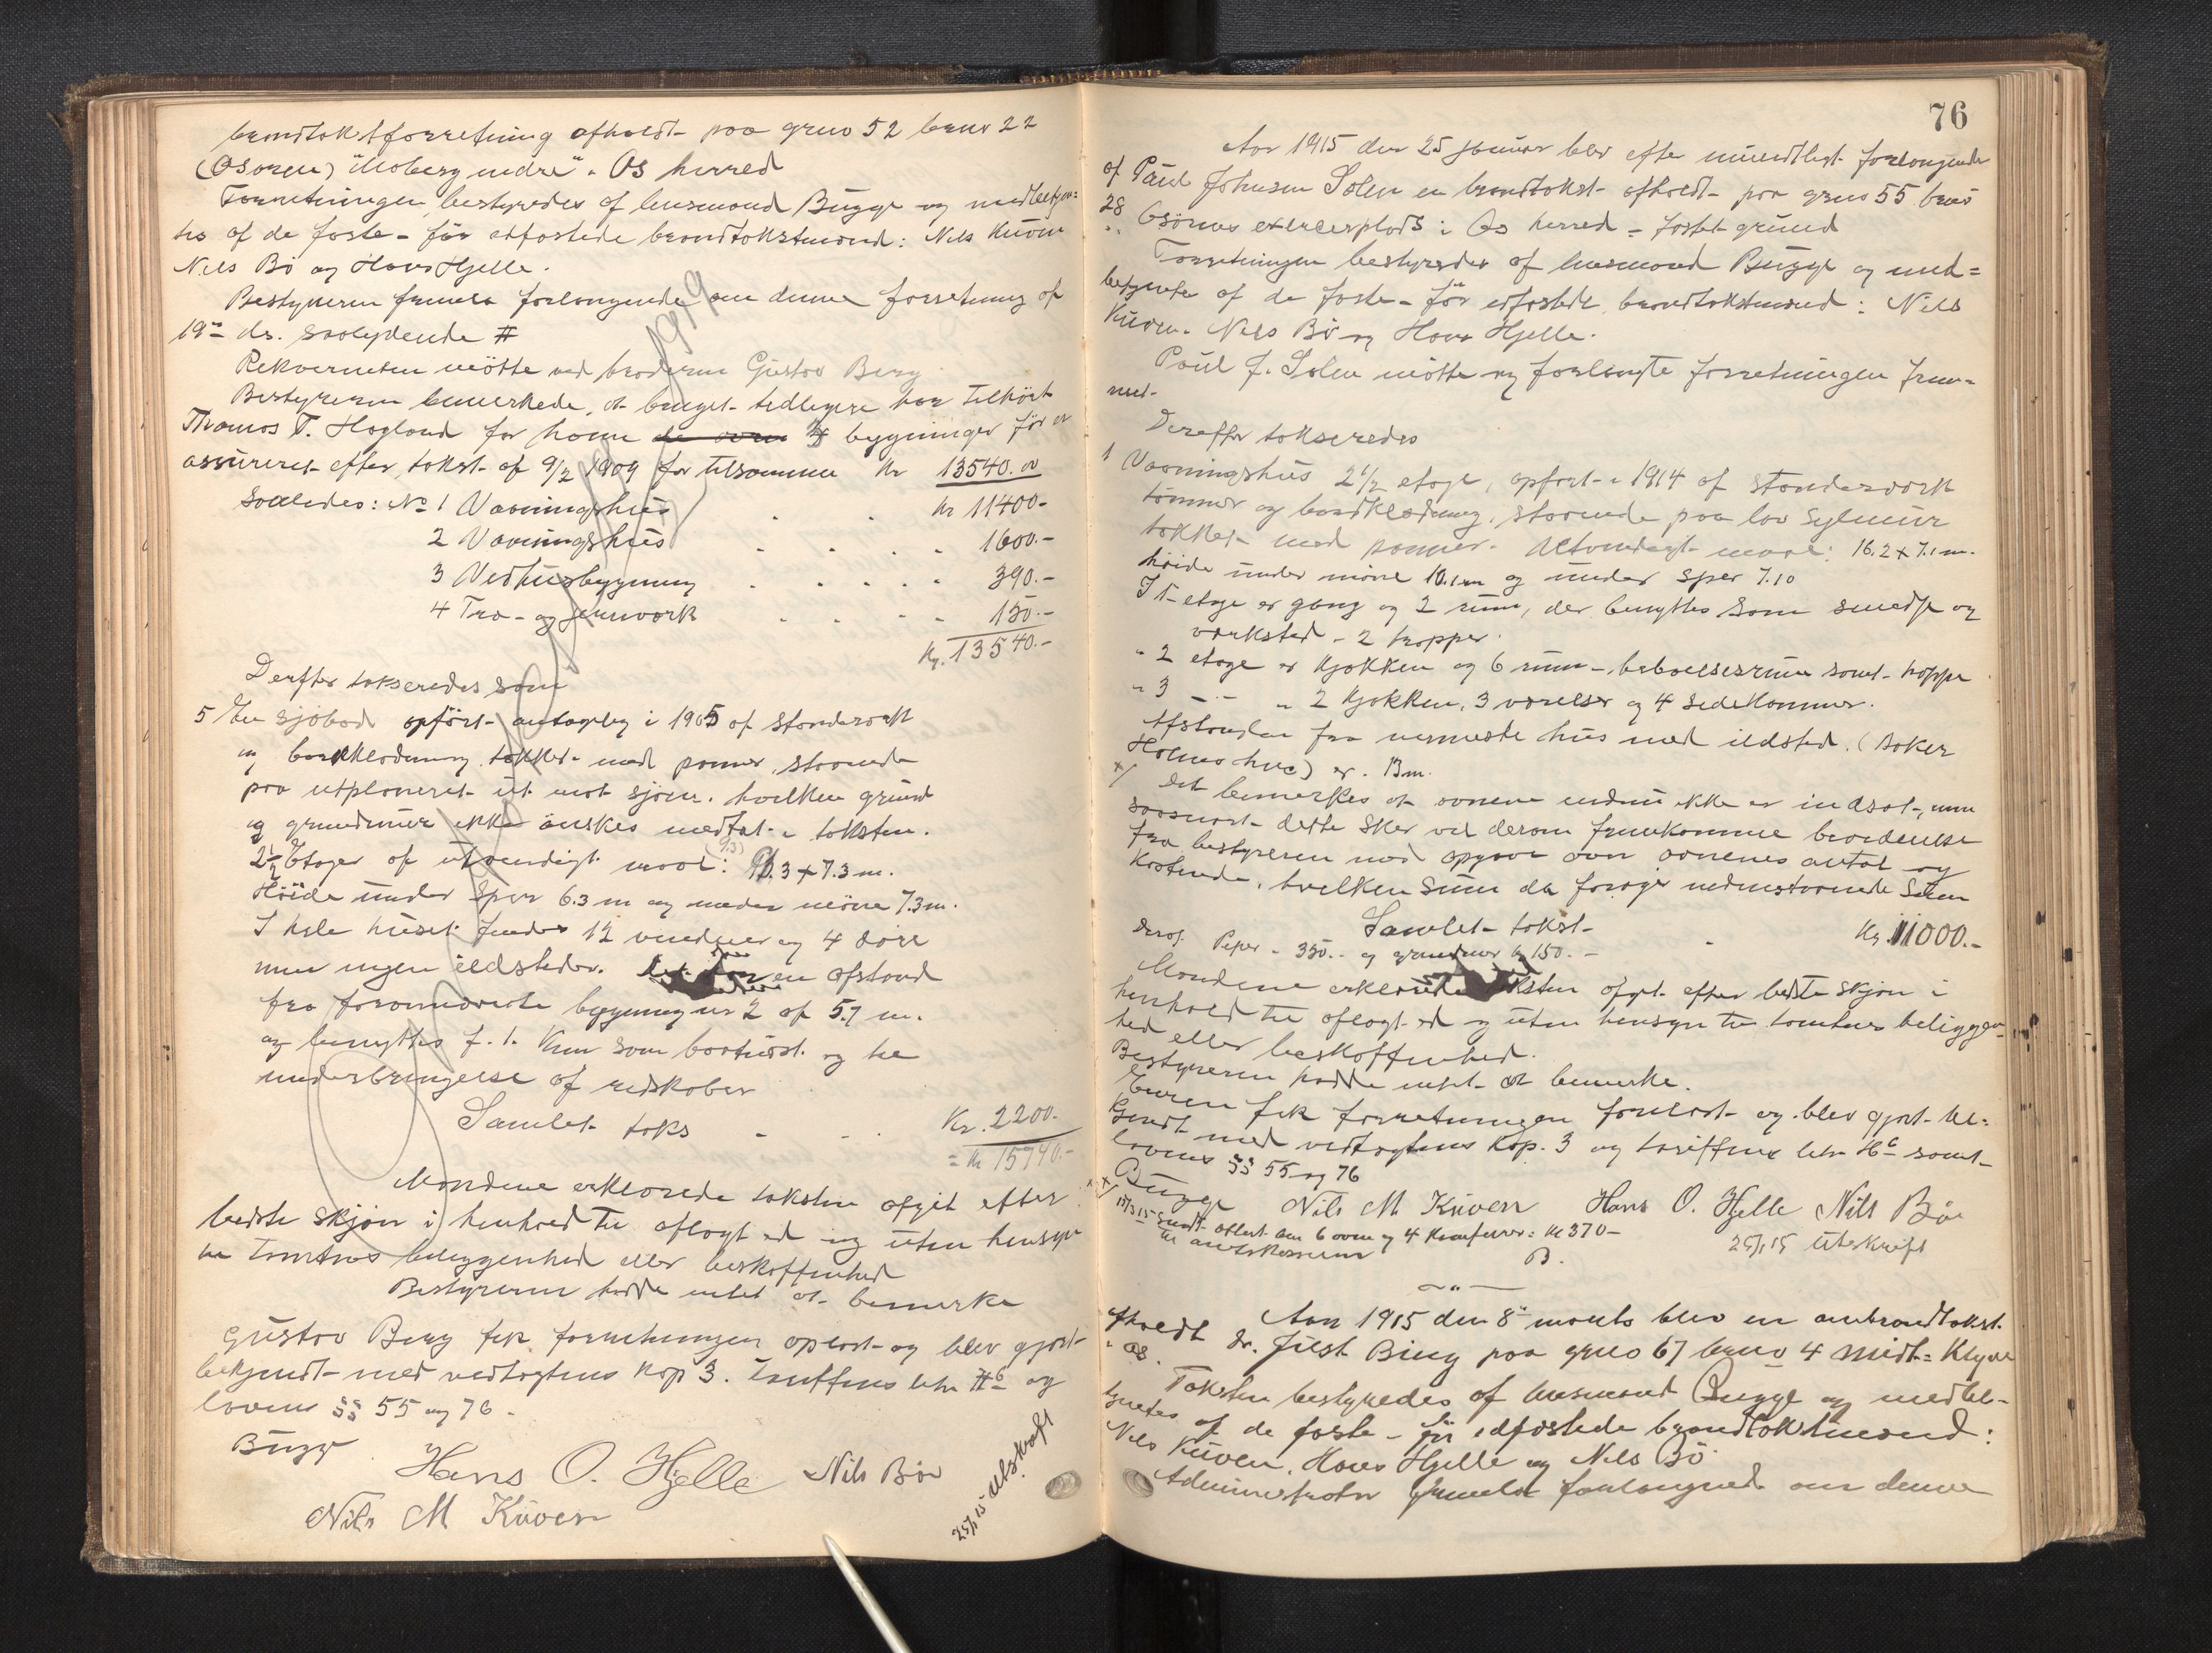 brandtakstforretning afholdt paa gruo 52 bruo 22
(Osøren) "Moberg nedre". Os herred
Forretningen bestyredes af lensmand Bugge og medbetjen=
tes af de faste - før edfæstede brandtakstmænd: Nils Kuven
Nils Bö og Hans Hjelle.
Bestyreren fremla forlangende om denne forretning af
19de ds. saalydende #
Rekvirenten mötte ved broderen Gustav Berg
Bestyreren bemerkede, at bruget tidligere har tilhört
Thomas T. Hagland for ham 4 bygninger før er
assureret efter takst af 9/2 1909 for tilsammen Kr 13540.00
Saaledes: No 1 Vaaningshus . . Kr 11400-
2 Vaaningshus . . . . 1600.-
3 Vedhusbygning . . . . . 390.-
4 Træ- og jernverk . . . . 150.-
Kr. 13540.-
Derefter takseredes som
5 En sjöbod opført antagelig i 1905 af standerverk
og bordklædning tækket med panner, staaende
paa utplaneret ut mot sjöen. hvilken grund
og grundmur ikke önskes medtat i taksten.
2½ Etager af utvendigt maal: 9.3 + 7.3 m.
Höide under sper 6.3 m og under möne 7.3 m.
I hele huset findes 12 vinduer og 4 döre
men ingen ildsteder. en afstand
fra forannævnte bygning nr 2 af 5.7 m.
og benyttes f. t. Kun som og til
underbringelse af redskaber
Samlet takst - - . Kr. 2200.-
= Kr 15740.-
Mændene erklærede taksten afgit efter
bedste skjön i henhold til aflagt ed og uten hensyn
til tomtens beliggenhed eller beskaffenhed
Bestyreren hadde intet at bemerke
Gustav Berg fik forretningen oplæst og blev gjort
bekjendt med vedtægtens Kap 3. Tariffens litr H6 og
lovens §§ 55 og 76 -
Bugge Hans O. Hjelle Nils Böe
Nils M Kuven
25/1 15 Utskrift
76
Aar 1915 den 25 januar blev efter mundtligt forlangende
af Paul Johnsen Solen en brandtakst afholdt paa gruo 55 bruo
28 Osörens exercerplads i Os herred - fæstet grund
Forretningen bestyredes af lensmand Bugge og med=
betjentes af de faste - før edfæstede brandtakstmænd: Nils
Kuven. Nils Bö og Hans Hjelle.
Paul J. Solen mötte og forlangte forretningen frem=
met.
Derefter takseredes
1 Vaaningshus 2½ etage, opført i 1914 af standerverk
tømmer og bordklædning, staaende paa lav sylmur
tækket med panner. Utvendigt maal: 16.2 + 7.1 m.
höide under möne 10.1 m og under sper 7.10
I 1 etage er gang og 2 rum, der benyttes som smedje og
verksted - 2 trapper.
" 2 etage er Kjøkken og 6 rum - beboelsesrum samt trappe
" 3 - - " 2 Kjøkken, 3 værelser og 4 sidekammer.
Afstanden fra nærmeste hus med ildsted. (Baker
Holms hus) er . 13 m.
x/ Det bemerkes at ovnene endnu ikke er indsat, men
saasnart dette sker vil derom fremkomme bevidnelse
fra bestyreren med opgave over ovnenes antal og
Kostende, hvilken sum da forøger nedenstaaende sum
Samlet takst - Kr. 11000.-
deraf Piper - 350.- og grundmur kr 150. -
Mændene erklærede taksten afgit efter bedste skjön i
henhold til aflagt ed og uten hensyn til tomtens beliggen=
hed eller beskaffenhed.
Bestyreren hadde intet at bemerke.
Eieren fik forretningen forelæst og blev gjort be=
kjendt med vedtægtens Kap. 3 og tariffens litr H6 samt
lovens §§ 55 og 76
Bugge Nils M Kuven Hans O. Hjelle Nils Böe
x/ 15/3 15 sendt attest om 6 ovne og 4 Komfurer: Kr 370-
25/1 15 Utskrift
B.
Aar 1915 den 8de marts blev en ombrandtakst
afholdt Bing paa gruo 67 bruo 4 midt-Klyve
i Os.
Taksten bestyredes af lensmand Bugge og medbe-
tjentes af de faste - før edfæstede brandtakstmænd:
Nils Kuven. Hans Hjelle og Nils Bö
Administrator fremla forlangende om denne